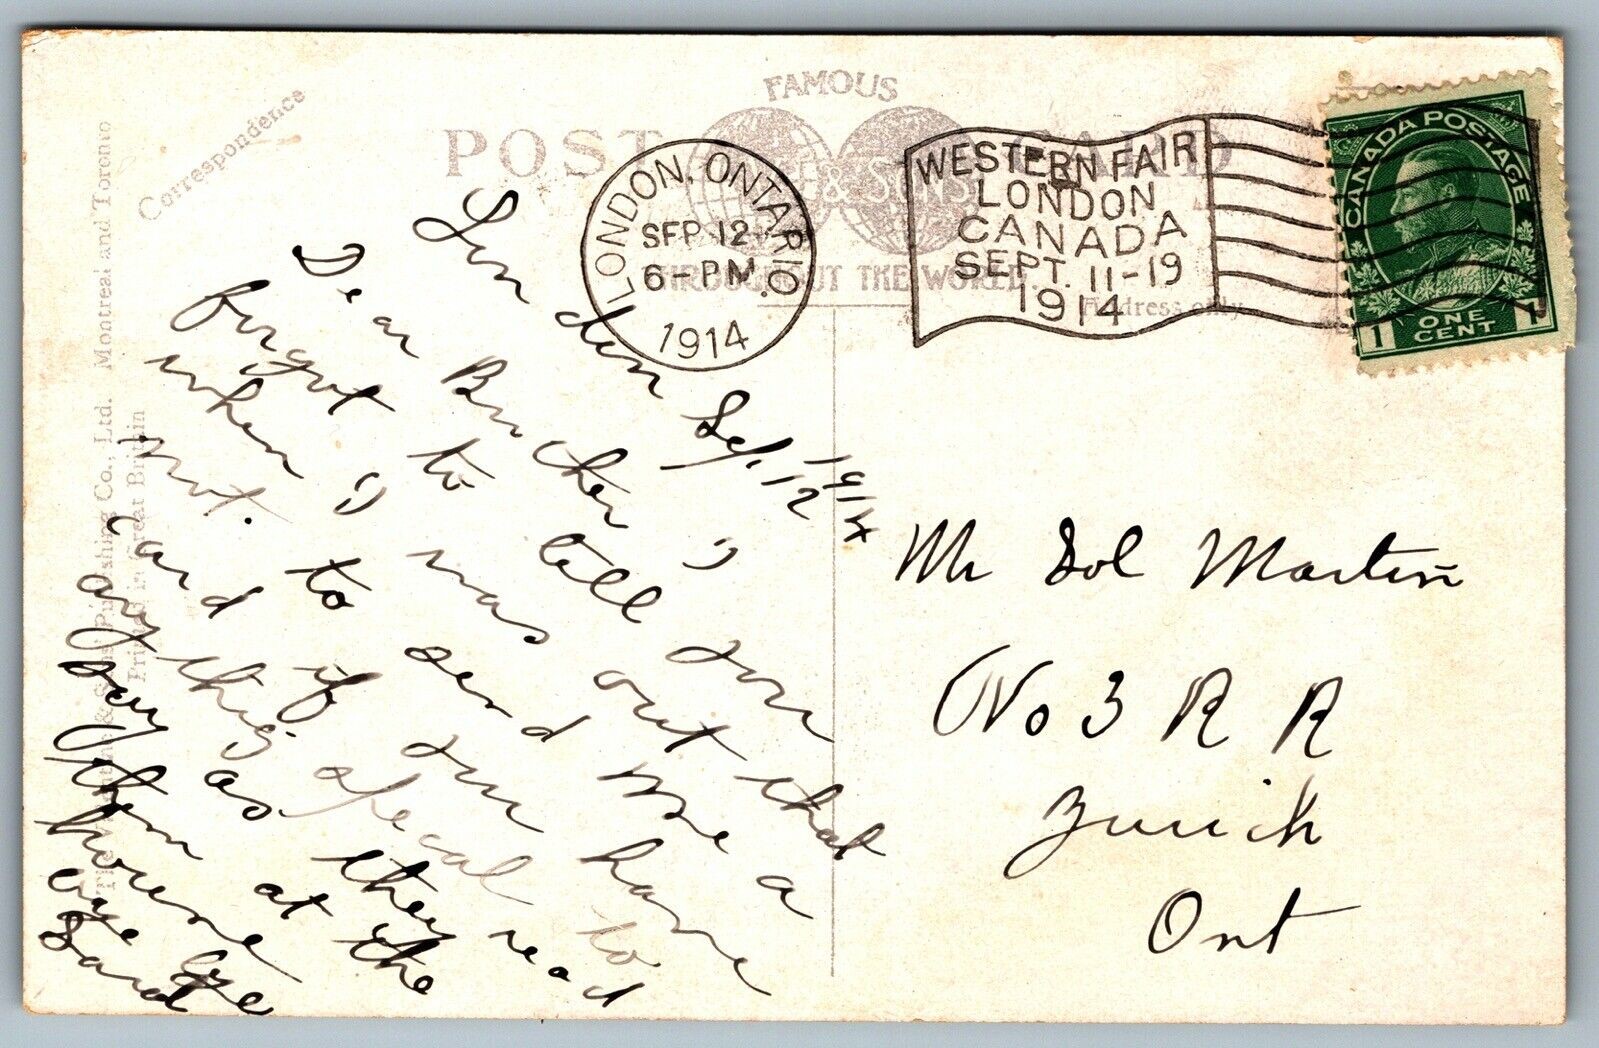 FAMOUS
POST CARD
& SONS
THROUGHOUT THE WORLD.
Correspondence
Address only
& Sons' Publishing Co., Ltd. Montreal and Toronto
Printed in Great Britain
LONDON, ONTARIO.
SEP 12
6-PM
1914
WESTERN FAIR
LONDON
CANADA
SEPT. 11-19
1914
CANADA POSTAGE
1 ONE CENT 1
London Sep. 12 1914
Dear Brother I
forgot to tell you
when I was out that
not to send me a
card if you have
anything specal to
say as they read
them at the
house
bye bye
Mr Sol Martin
No 3 R R
Zurich
Ont